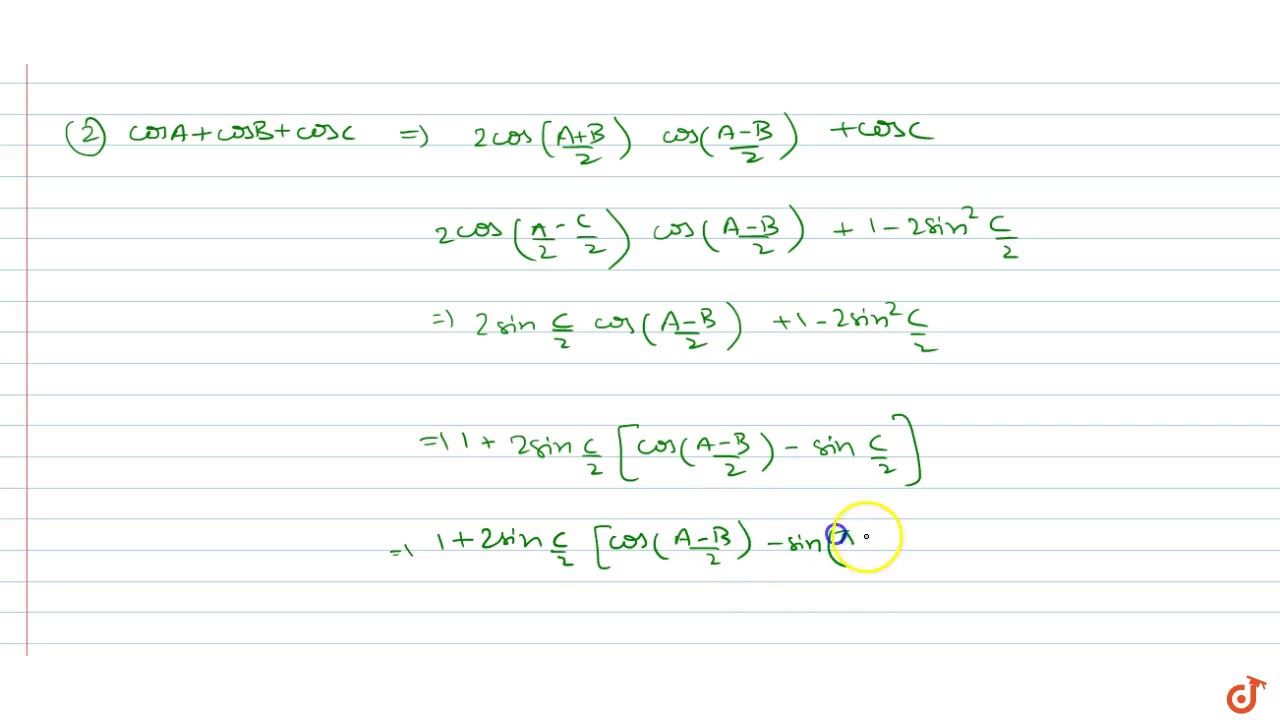 (2) cosA + cosB + cosC => 2cos((A+B)/2) cos((A-B)/2) + cosC
2cos(π/2 - C/2) cos((A-B)/2) + 1 - 2sin² C/2
=> 2sin C/2 cos((A-B)/2) + 1 - 2sin² C/2
=> 1 + 2sin C/2 [cos((A-B)/2) - sin C/2]
=> 1 + 2sin C/2 [cos((A-B)/2) - sin(π